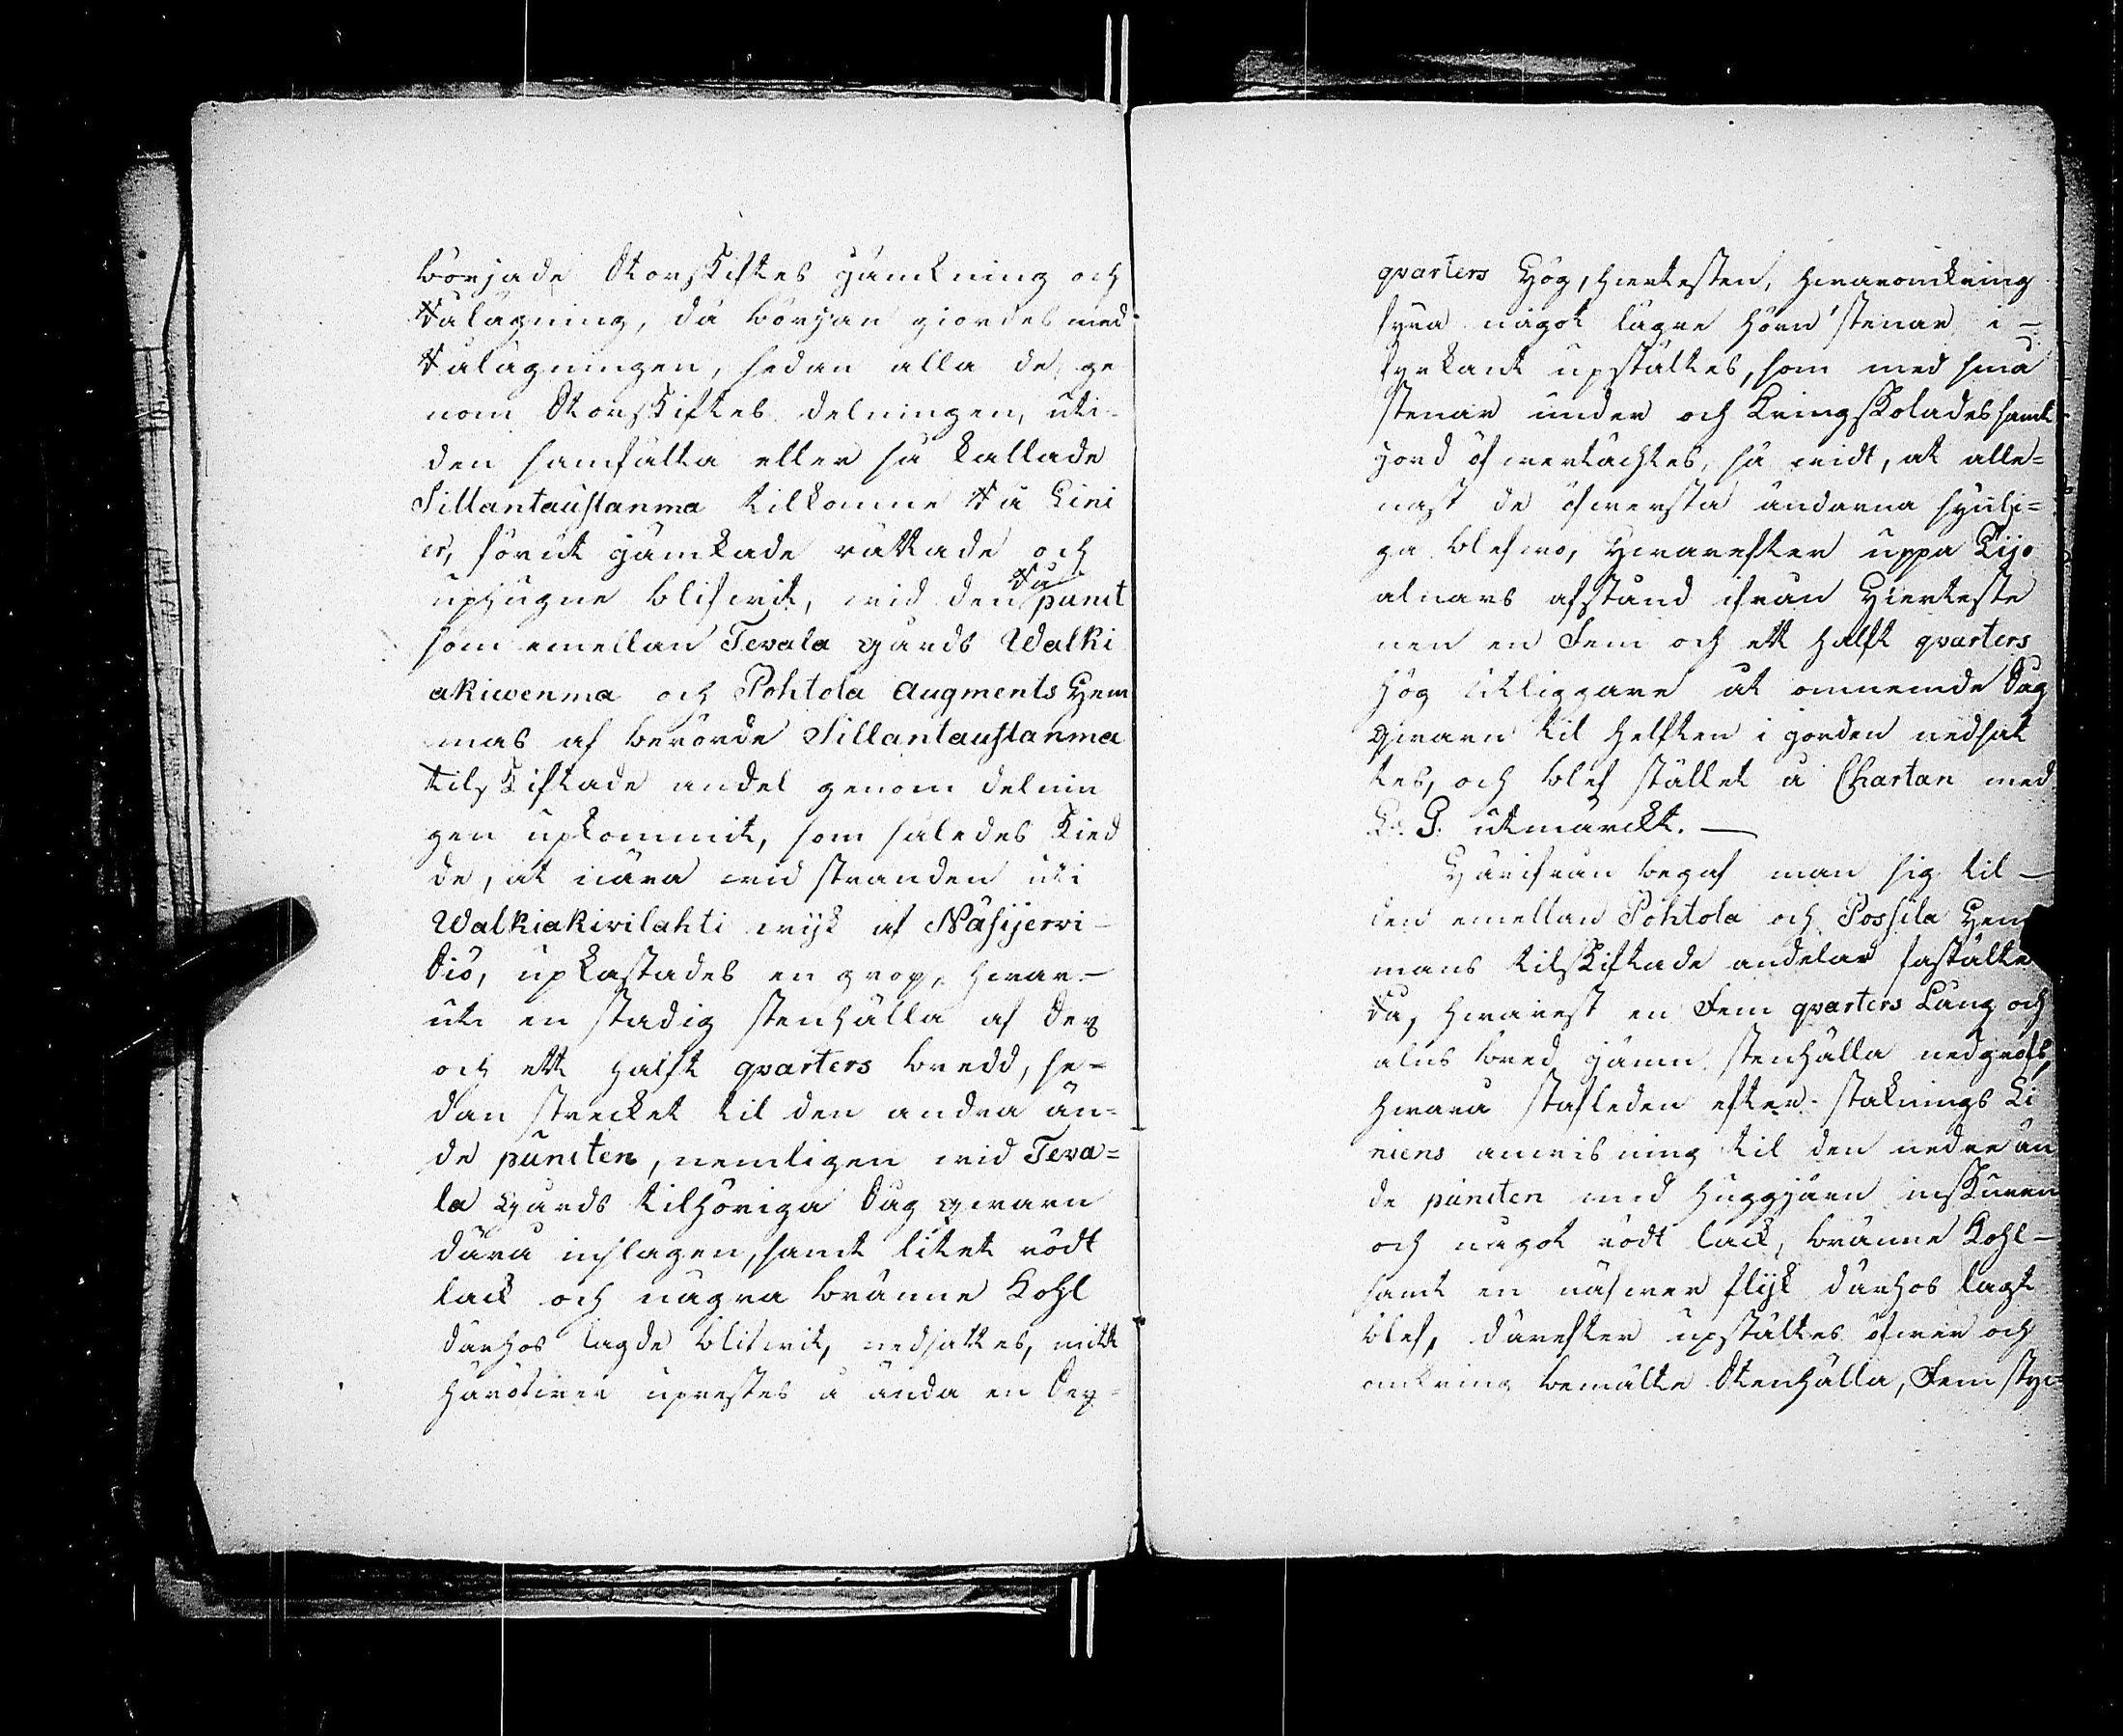 började Storskiftes jämkning och
Råläggning, då början giordes med
Råläggningen, sedan alla de ge
nom Storskiftes delningen, uti
den samfälta eller så kallade
Sillantaustanma tilkomne Rå Lini
er, förut jämkade rättade och
uphugne blifwit, wid den Rå punct
som emellan Tevala gårds Walki
akiwenma och Pohtola Augments Hem
mas af berörde Sillantaustanma
tilskiftade andel genom delnin
gen upkommit, som således skied
de, at nära wid stranden uti
Walkiakivilahti wijk af Näsijerwi
Siö, upkastades en grop, hwar-
uti en stadig stenhälla af Sex
och ett halft qvarters bredd, se-
dan strecket til den andra än-
de puncten, nemligen wid Teva=
la Gårds tilhöriga Såg qwarn
dära inslagen, samt litet rödt
lack och några brända Kohl
därhos lagde blifwit, nedsattes, mitt
häröfwer uprestes å ända en Sex=
qvarters Hög, hiertesten, hwaromkring
fyra något lägre hörn stenar i-
fyrkant upstältes, som med små
stenar under och kringskolades samt
jord öfwertächtes, så widt, at alle=
nast de öfwersta ändarna synli=
ga blefwo, Hwarefter uppå Tijo
alnars afstånd ifrån Hierteste
nen en Fem och ett halft qvarters
hög Utliggare åt omnemde Såg
Qwarn til helften i jorden nedsat
tes, och blef stället å Chartan med
G. utmärckt. —
Härifrån begaf man sig til-
den emellan Pohtola och Possila Hem
mans tilskiftade andelar fastälte
Rå, hwarest en Fem qvarters Lång och
alns bred jämn stenhälla nedgrofs,
hwara staflden efter stakninge Li
niens anwisning til den nedre än
de puncten med huggjärn inskuren
och något rödt lack, brände Kohl-
samt en näfwer flijk därhos lagt
blef, därefter upstältes öfwer och
omkring bemälte Stenhälla, Fem styc=